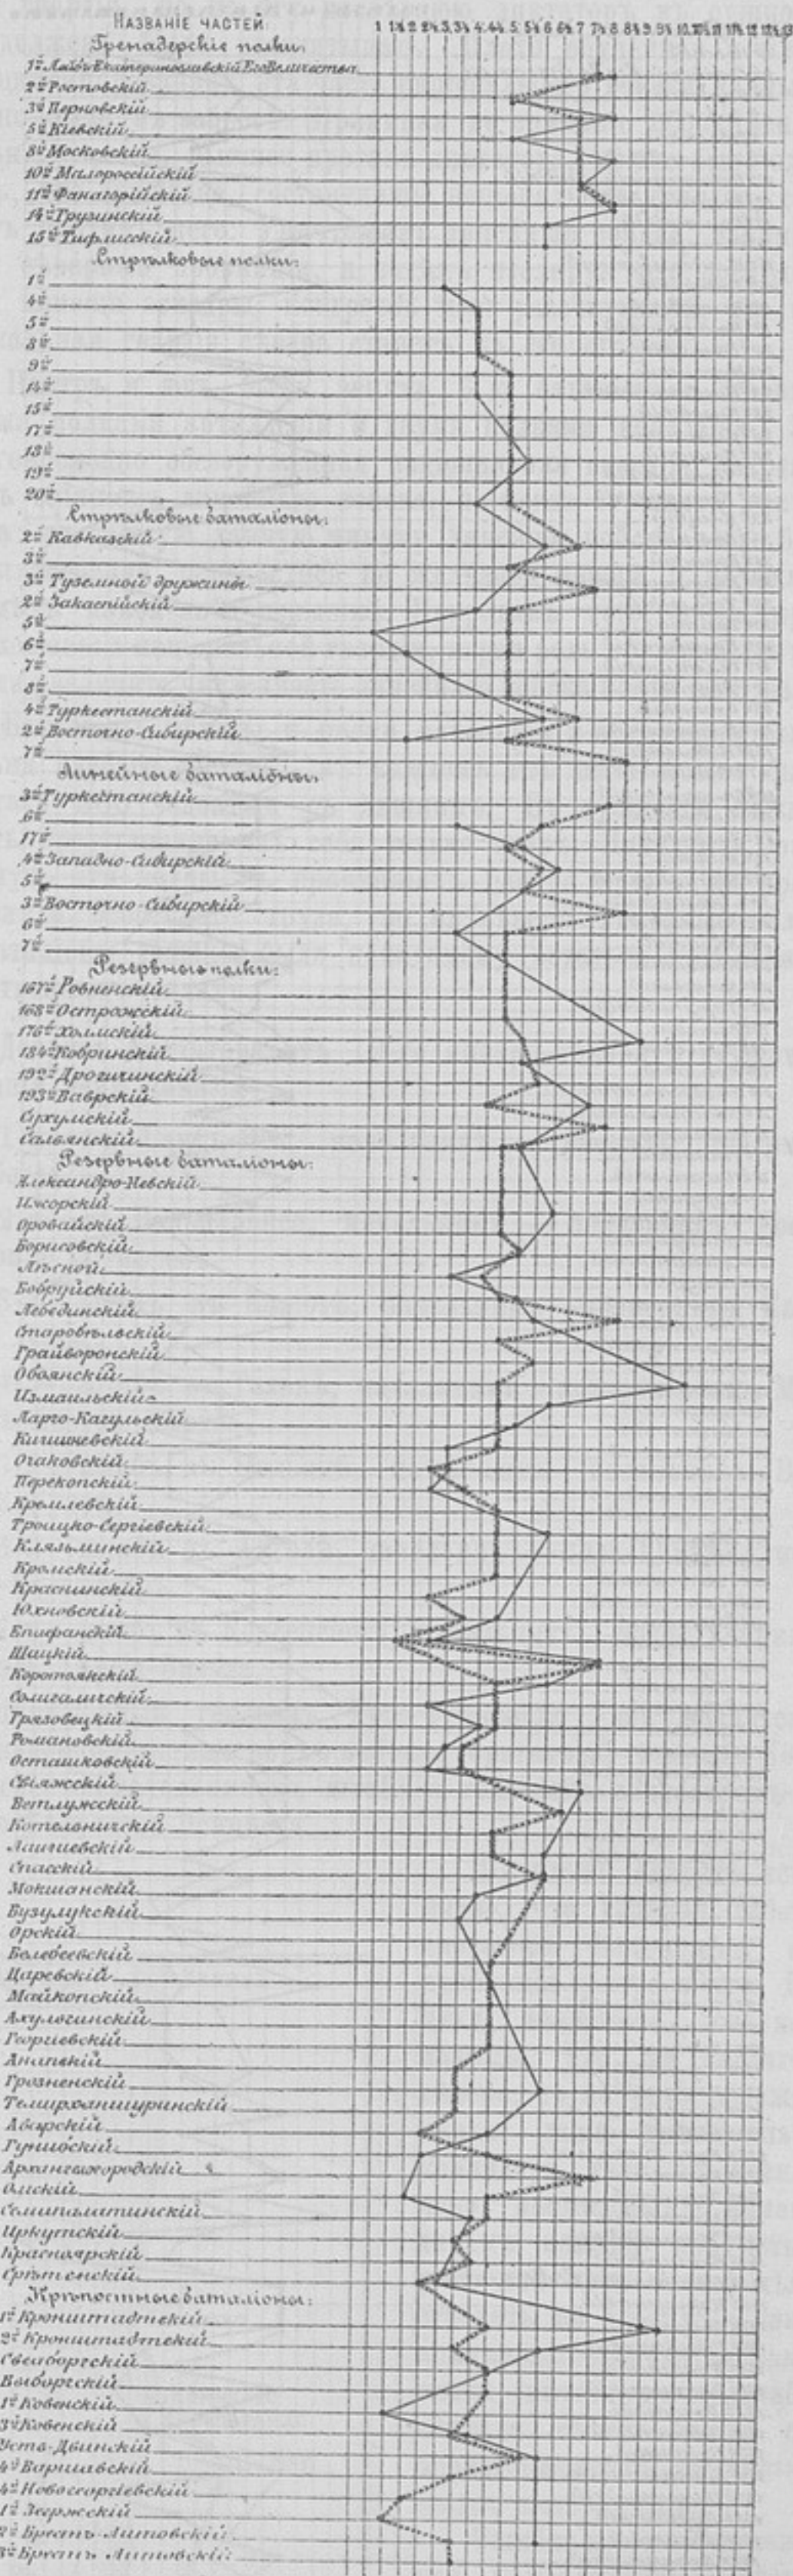 Названіе частей.
1 1½ 2 2½ 3 3½ 4 4½ 5 5½ 6 6½ 7 7½ 8 8½ 9 9½ 10 10½ 11 11½ 12 12½ 13
Гренадерскіе полки:
1й Лейбъ Екатеринославскій Его Величества
2й Ростовскій
3й Перновскій
5й Кіевскій
8й Московскій
10й Малороссійскій
11й Фанагорійскій
14й Грузинскій
15й Тифлисскій
Стрѣлковые полки:
1й
4й
5й
8й
9й
14й
15й
17й
18й
19й
20й
Стрѣлковые баталіоны:
2й Кавказскій
3й
3й Туземной дружины
2й Закаспійскій
5й
6й
7й
8й
4й Туркестанскій
2й Восточно-Сибирскій
7й
Линейные баталіоны:
3й Туркестанскій
6й
17й
4й Западно-Сибирскій
5й
3й Восточно-Сибирскій
6й
7й
Резервные полки:
167й Ровненскій
168й Острожскій
176й Холмскій
184й Кобринскій
192й Дрогичинскій
193й Ваврскій
Сухумскій
Сальянскій
Резервные баталіоны:
Александро-Невскій
Ижорскій
Оровайскій
Борисовскій
Лѣсной
Бобруйскій
Лебединскій
Старобѣльскій
Грайворонскій
Обоянскій
Измаильскій
Ларго-Кагульскій
Кишиневскій
Очаковскій
Перекопскій
Кремлевскій
Троицко-Сергіевскій
Клязьминскій
Кромскій
Краснинскій
Юхновскій
Епифанскій
Шацкій
Коротоякскій
Солигаличскій
Грязовецкій
Романовскій
Осташковскій
Свіяжскій
Ветлужскій
Котельничскій
Лаишевскій
Спасскій
Мокшанскій
Бузулукскій
Орскій
Белебеевскій
Царевскій
Майкопскій
Ахульгинскій
Георгіевскій
Анапскій
Грозненскій
Темирханшуринскій
Аварскій
Гунибскій
Архангелогородскій
Омскій
Семипалатинскій
Иркутскій
Красноярскій
Срѣтенскій
Крѣпостные баталіоны:
1й Кронштадтскій
2й Кронштадтскій
Свеаборгскій
Выборгскій
1й Ковенскій
3й Ковенскій
Усть-Двинскій
4й Варшавскій
4й Новогеоргіевскій
1й Зегржскій
2й Брестъ-Литовскій
3й Брестъ-Литовскій